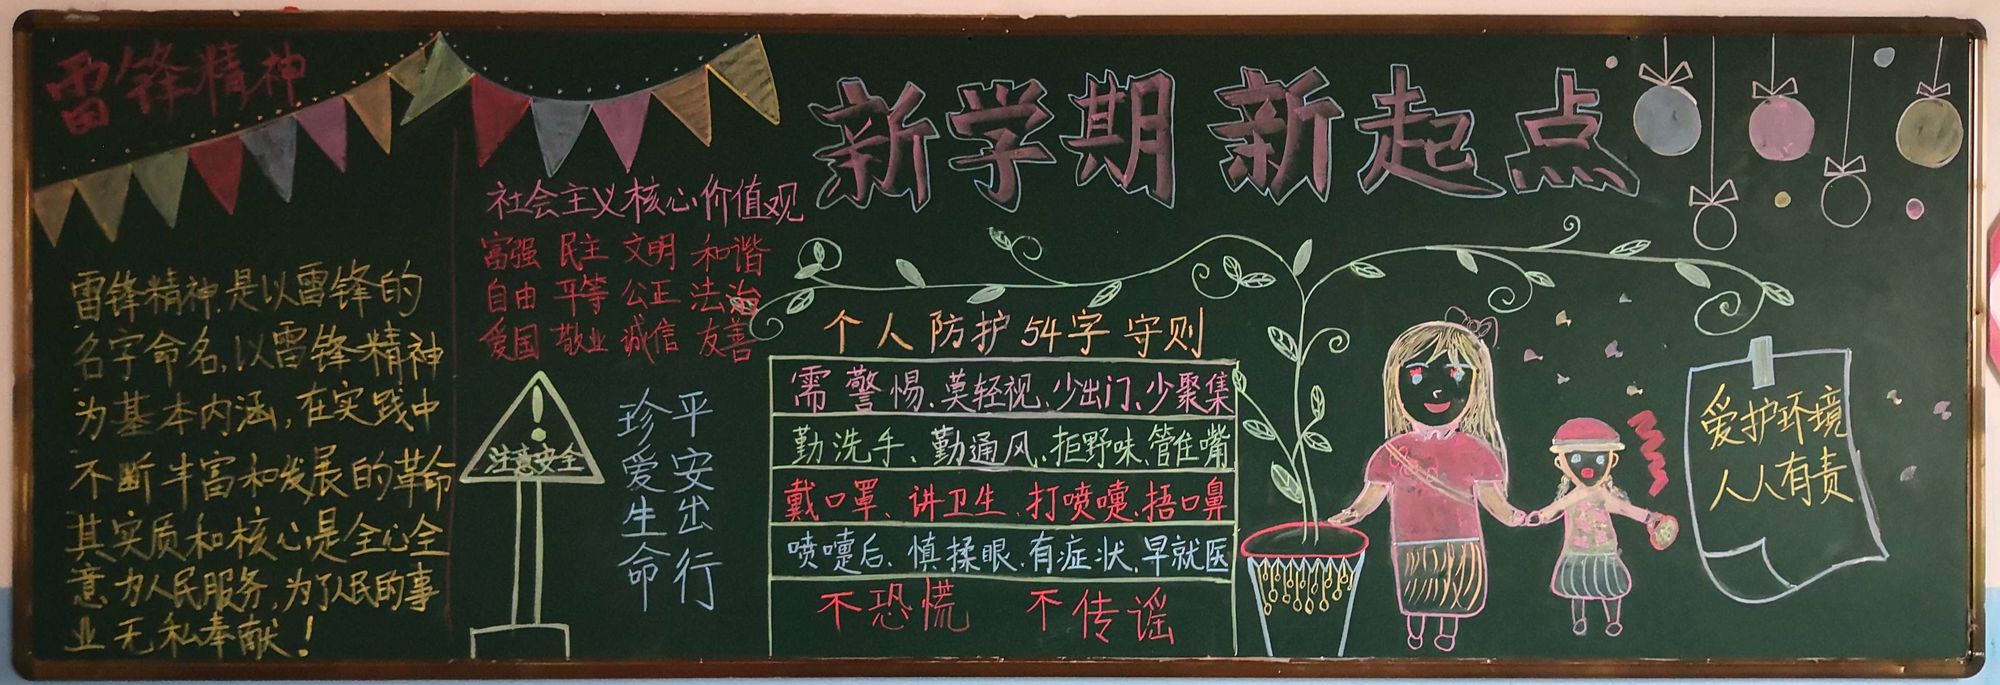 雷锋精神
雷锋精神,是以雷锋的
名字命名,以雷锋精神
为基本内涵,在实践中
不断丰富和发展的革命
其实质和核心是全心全
意为人民服务,为了人民的事
业无私奉献!
社会主义核心价值观
富强 民主 文明 和谐
自由 平等 公正 法治
爱国 敬业 诚信 友善
注意安全
珍爱生命
平安出行
新学期 新起点
个人防护54字守则
需警惕、莫轻视、少出门、少聚集
勤洗手、勤通风、拒野味、管住嘴
戴口罩、讲卫生、打喷嚏、捂口鼻
喷嚏后、慎揉眼、有症状、早就医
不恐慌 不传谣
爱护环境
人人有责